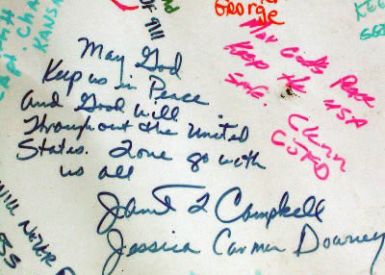 OF 911
George
KANSA
May God
Keep us in Peace
and Good will
Throughout the United
States. Love go with
us all
Janet L Campbell
Jessica Carmen Downey
May God's Peace
Keep the USA
Safe.
Glenn
GSTED
Will Never F